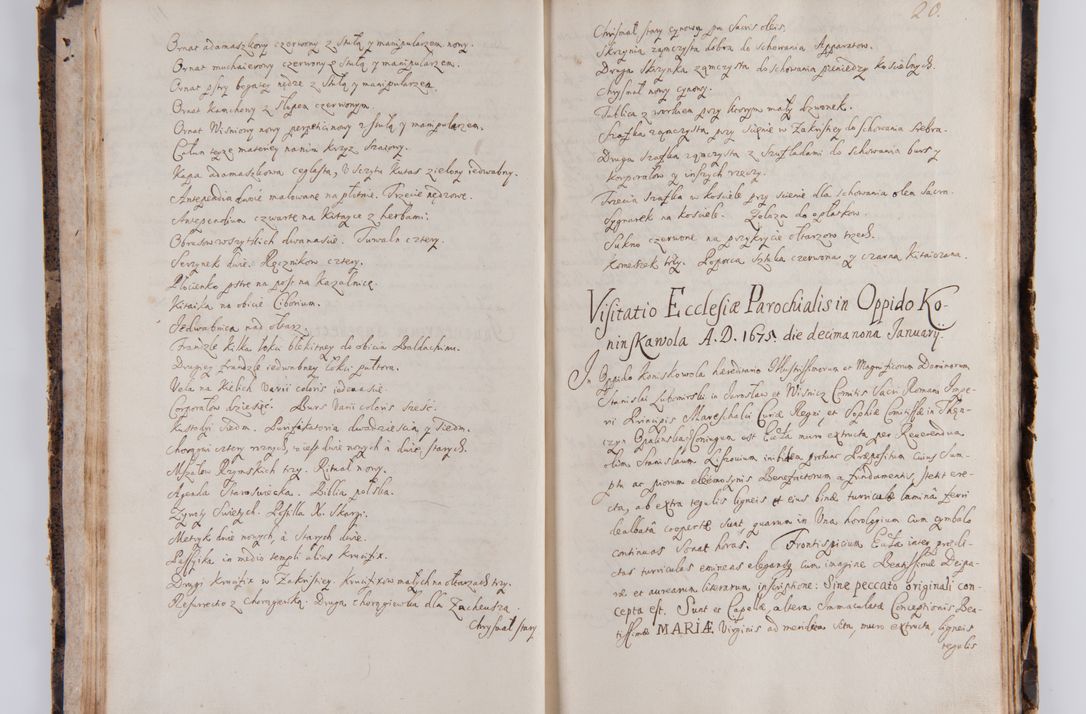 Ornat adamaszkowy czerwony z Stułą y manipularzem nowy.
Ornat muchaierowy czerwony z Stułą y manipularzem.
Ornat pstry bogaty z Stułą y manipularzem.
Ornat kamchowy z słupem czerwonym.
Ornat Wisniowy nowy z stułą y manipularzem.
Całun teyze materiey na nim krzyz
Kapa adamaszkowa ceglasta, u szczyta kutas zielony iedwabny.
Antepedia dwie malowane na płotnie. Trzecie
Antepedium czwarte na kitayce z herbami.
Obrazow wszytkich dwanascie. Tuwaln cztery.
Serzynek dwie. Ręcznikow cztery.
Płocienko pstre na na Kazalnicę.
Kitaika na obicie Ciborium.
Jedwabnica nad ołtarz.
Franzle kilka łokci błękitney do obicia Baldachimu.
Drugiey franzle iedwabney łokci puttora.
Vela na Kielich Varii coloris iedenascie.
Corporałow dziesięć. Burs Varii coloris sześć.
Kustodyi siedm. Purificatoria dwadziescia y siedm.
Chorągwi cztery rznych, to iest dwie nowych a dwie starych.
Mszałow Rzymskich trzy. Rituał nowy.
Agenda Staroswiecka. Biblia polska.
Zywoty Swiętych. Postilla X. Skargi.
Metryk dwie nowych, a Starych dwie.
Passyika in medio templi alias krucifix.
Drugi krucifix w Zakristiey. Krucifixow małych na ołtarzach trzy.
Resurrectio z chorągiewką. Druga chorągiewka dla Zacheusza.
Chrysmał stary
20.
Chrismał stary cynowy pro Sacris oleis.
Skrzynia zamczysta dobra do schowania Apparatow.
Druga Skrzynka zamczysta do schowania pieniedzy koscielnych.
Chrysmał nowy cynowy.
Tablica z workiem przy ktorym mały dzwonek.
Szafka zamczysta przy scienie w Zakristiey do schowania srebra.
Druga szafka zamczysta z Szufladami do schowania burs y
korporałow y inszych rzeczy.
Trzecia szafka w kosciele przy scienie dla schowania olea Sacra.
Sygnarek na kosciele. Zelaza do opłatkow.
Sukno czerwone na przykrycie ołtarzow trzech.
Komeszek trzy. sztuka czerwona y czarna kitaiczana.
Visitatio Ecclesiæ Parochialis in Oppido Ko-
ninskawola A.D. 1675. die decima nona Januarij.
In Oppido Koniskowola hereditario Illustrissimorum et Magnificorum Dominorum
Stanislai Lubomirski in Jarosław et Wisnicz Comitis Sacri Romani Impe-
rii Principis Mareschalci Curiæ Regni, et Sophiæ Comitissæ in Tęn-
czyn Opalinska Coniugum est Eccla muro extructa per Reverendum
olim Stanislaum Præpositum cuius Sum-
ptu ac piorum eleemosynis Benefactorum a fundamentis stetit ere-
cta, ab extra tegulis ligneis et eius binæ turriculæ lamina ferri
dealbata coopertæ sunt, quarum in Una horologium cum cymbalo
continuas Sonat horas. Frontispicium Ecclæ inter prædi-
ctas turriculas eminens elegans cum imagine Beatissimæ Deipa-
ræ et aurearum literarum inscriptione: Sine peccato originali con-
cepta est. Sunt et Capellæ, altera Immaculatæ Conceptionis Bea-
tissimæ MARIÆ Virginis ad meridiem sita, muro extructa, ligneis
tegulis